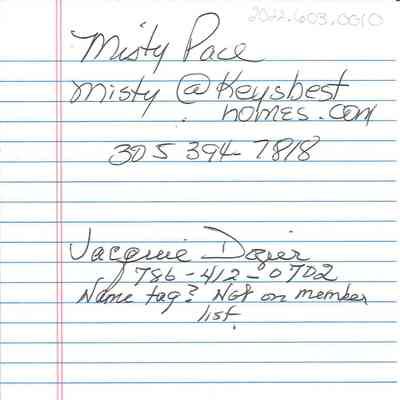 2022.603.0010
Misty Pace
misty @ Keysbest
homes.com
305 394-7818
Jacquie Dozier
786-412-0702
Name tag? Not on member
list